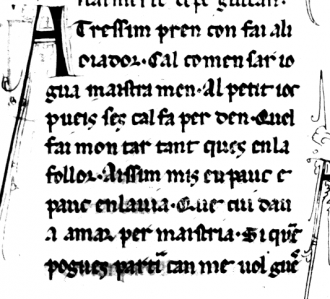 Atressim pren con fai ali
oiador. Cal comensar io
gua maistramen. Al petit ioc
pueis ses cal fa per den. Quel
fai montar tant ques enla
follor. Aissim mis eu pauc e
pauc enlauia. Que cui dau
a amar per maistria. Si que
pogues partir can me uol gues